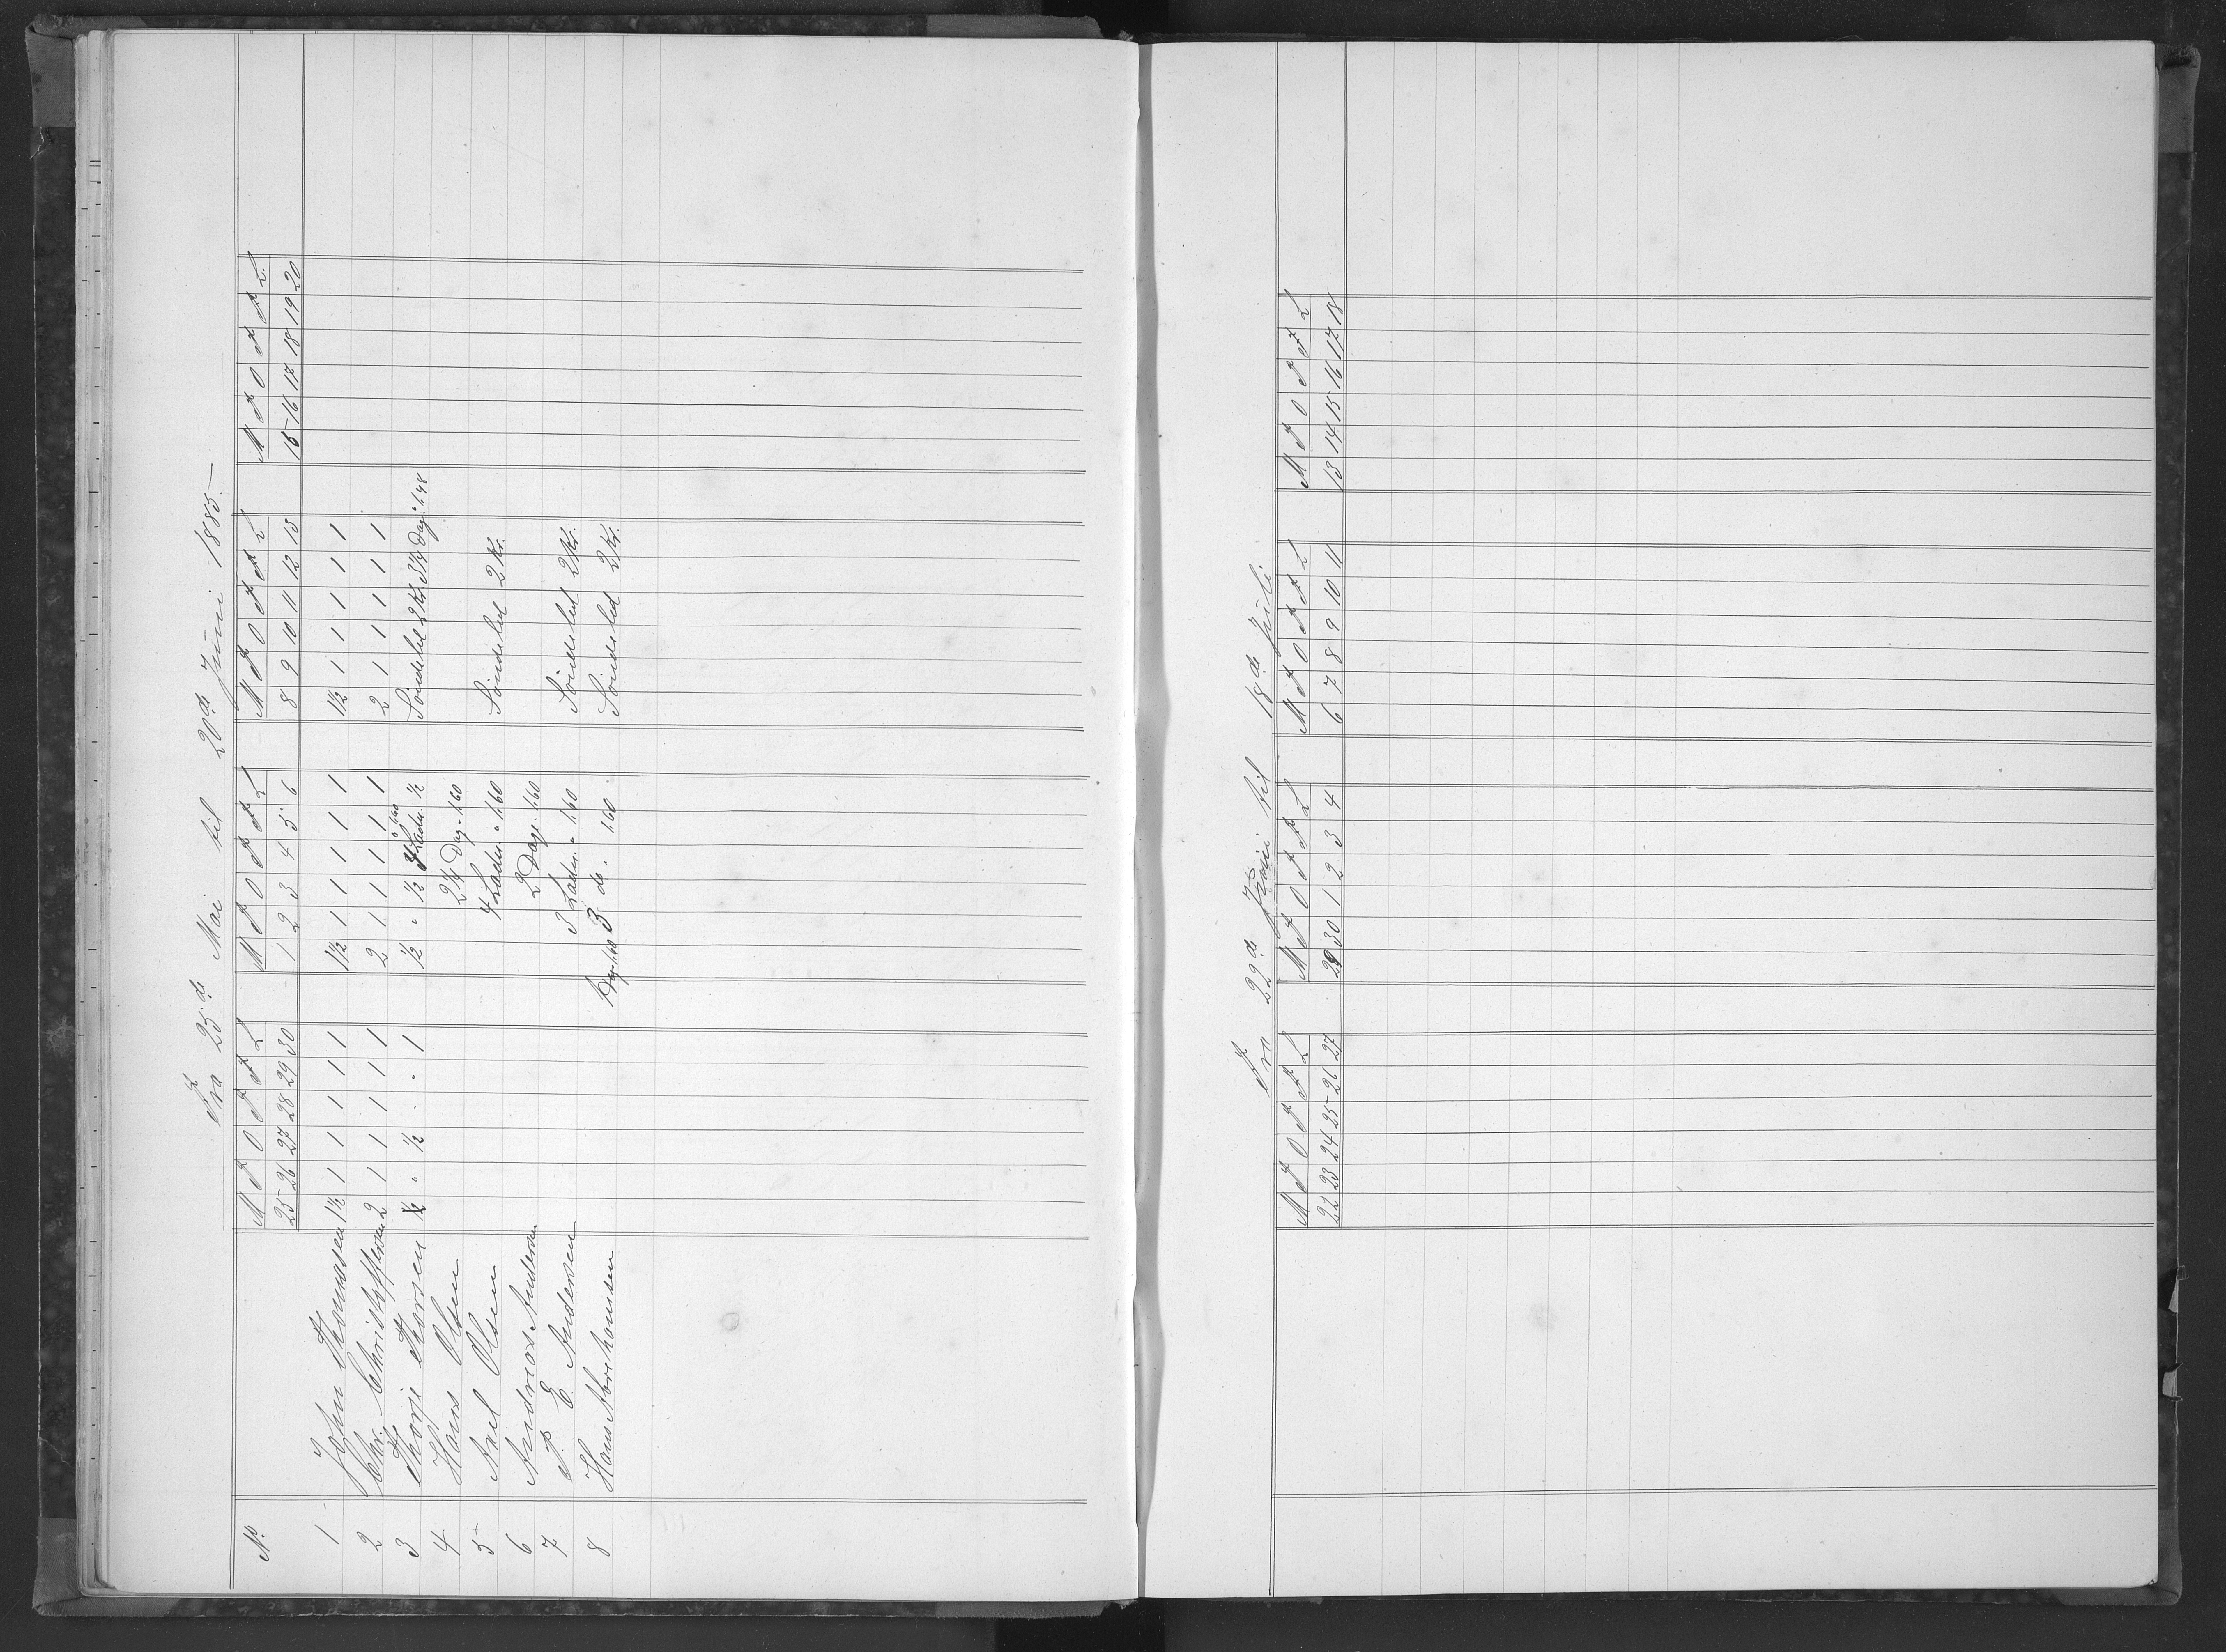 Fra 25de Mai til 20de Juni 1885.
No. M T O T F L M T O T F L M T O T F L M T O T F L.
25 26 27 28 29 30 1 2 3 4 5 6 8 9 10 11 12 13 15 16 17 18 19 20
1 John Thomassen 1½ 1 1 1 1 1 1½ 1 1 1 1 1 1½ 1 1 1 1 1
2 Chr. Christoffersen 2 1 1 1 1 1 2 1 1 1 1 1 2 1 1 1 1 1
3 Thorje Thorsen ½ " ½ " " 1 ½ " ½ Ladn. 1,60 ½ Söndeled 2 Kr. 3¼ Dag. " 1,48
4 Hans Olsen 2¼ Dag. 1,60
5 Axel Olsen 4 Ladn. " 1,60 Söndeled 2 Kr.
6 Andreas Andersen 2 Dage. 1,60
7 P. E. Andersen 3 Ladn. " 1,60 Söndeled 2 Kr.
8 Hans Abrahamsen Dag. 1,60 3 do. " 1,60 Söndeled 2 Kr.
Fra 22de Juni til 18de Juli
M T O T F L M T O T F L M T O T F L M T O T F L
22 23 24 25 26 27 29 30 1 2 3 4 6 7 8 9 10 11 13 14 15 16 17 18